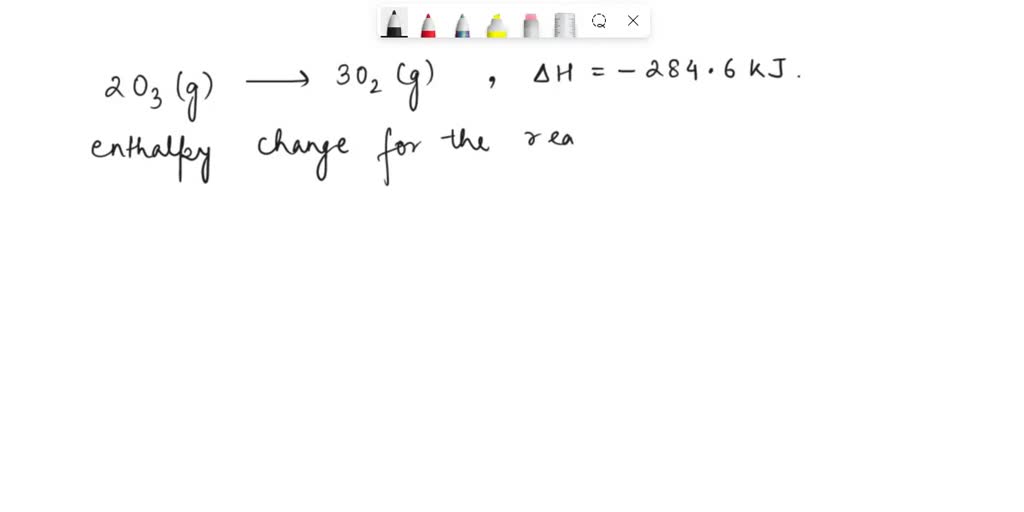 2O₃ (g) ⟶ 3O₂ (g) , ΔH = - 284.6 kJ.
enthalpy change for the rea